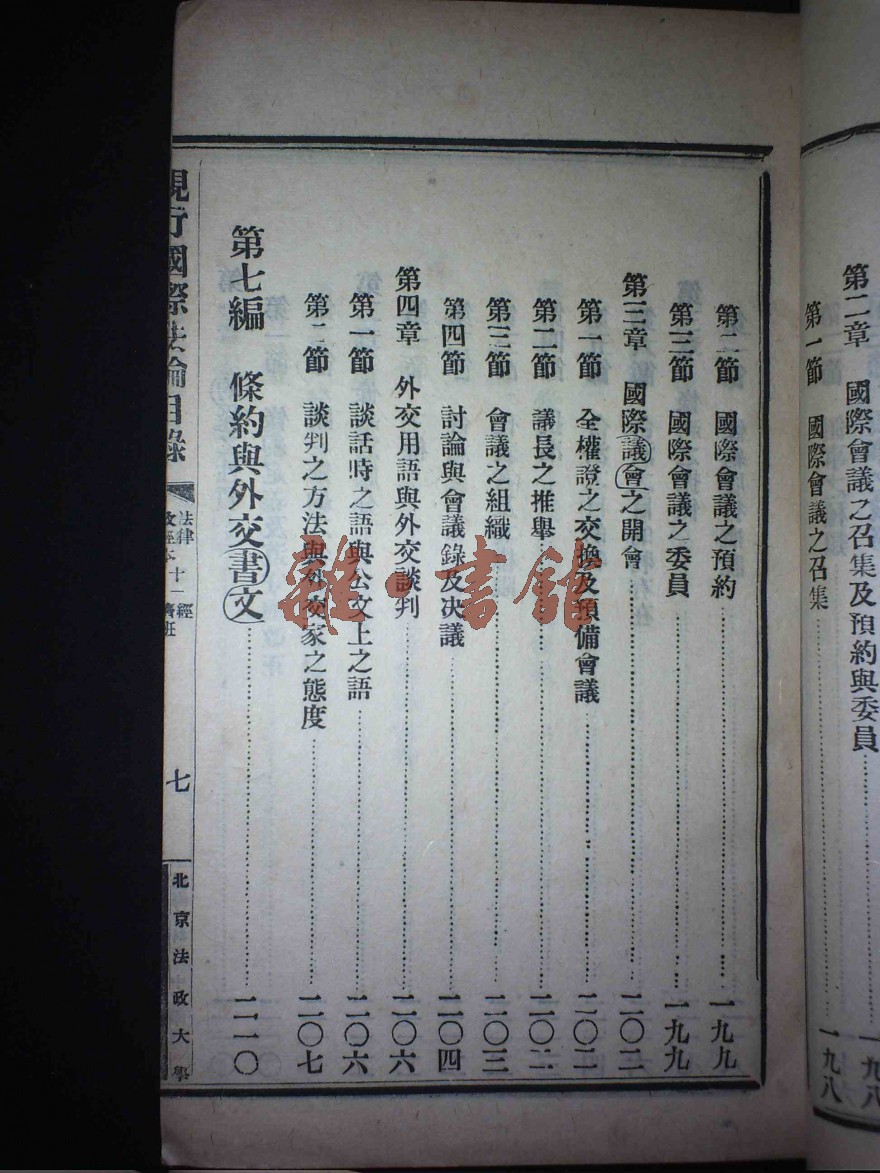 第二章　國際會議之召集及預約與委員……一九八
第一節　國際會議之召集……一九八
第二節　國際會議之預約……一九九
第三節　國際會議之委員……一九九
第三章　國際議會之開會……二〇二
第一節　全權證之交換及預備會議……二〇二
第二節　議長之推舉……二〇二
第三節　會議之組織……二〇三
第四節　討論與會議錄及決議……二〇四
第四章　外交用語與外交談判……二〇六
第一節　談話時之語與公文上之語……二〇六
第二節　談判之方法與外交家之態度……二〇七
第七編　條約與外交書文……二一〇
現行國際法論目錄
法律　經
政經本十一　濟班
七
北京法政大學
雜書館